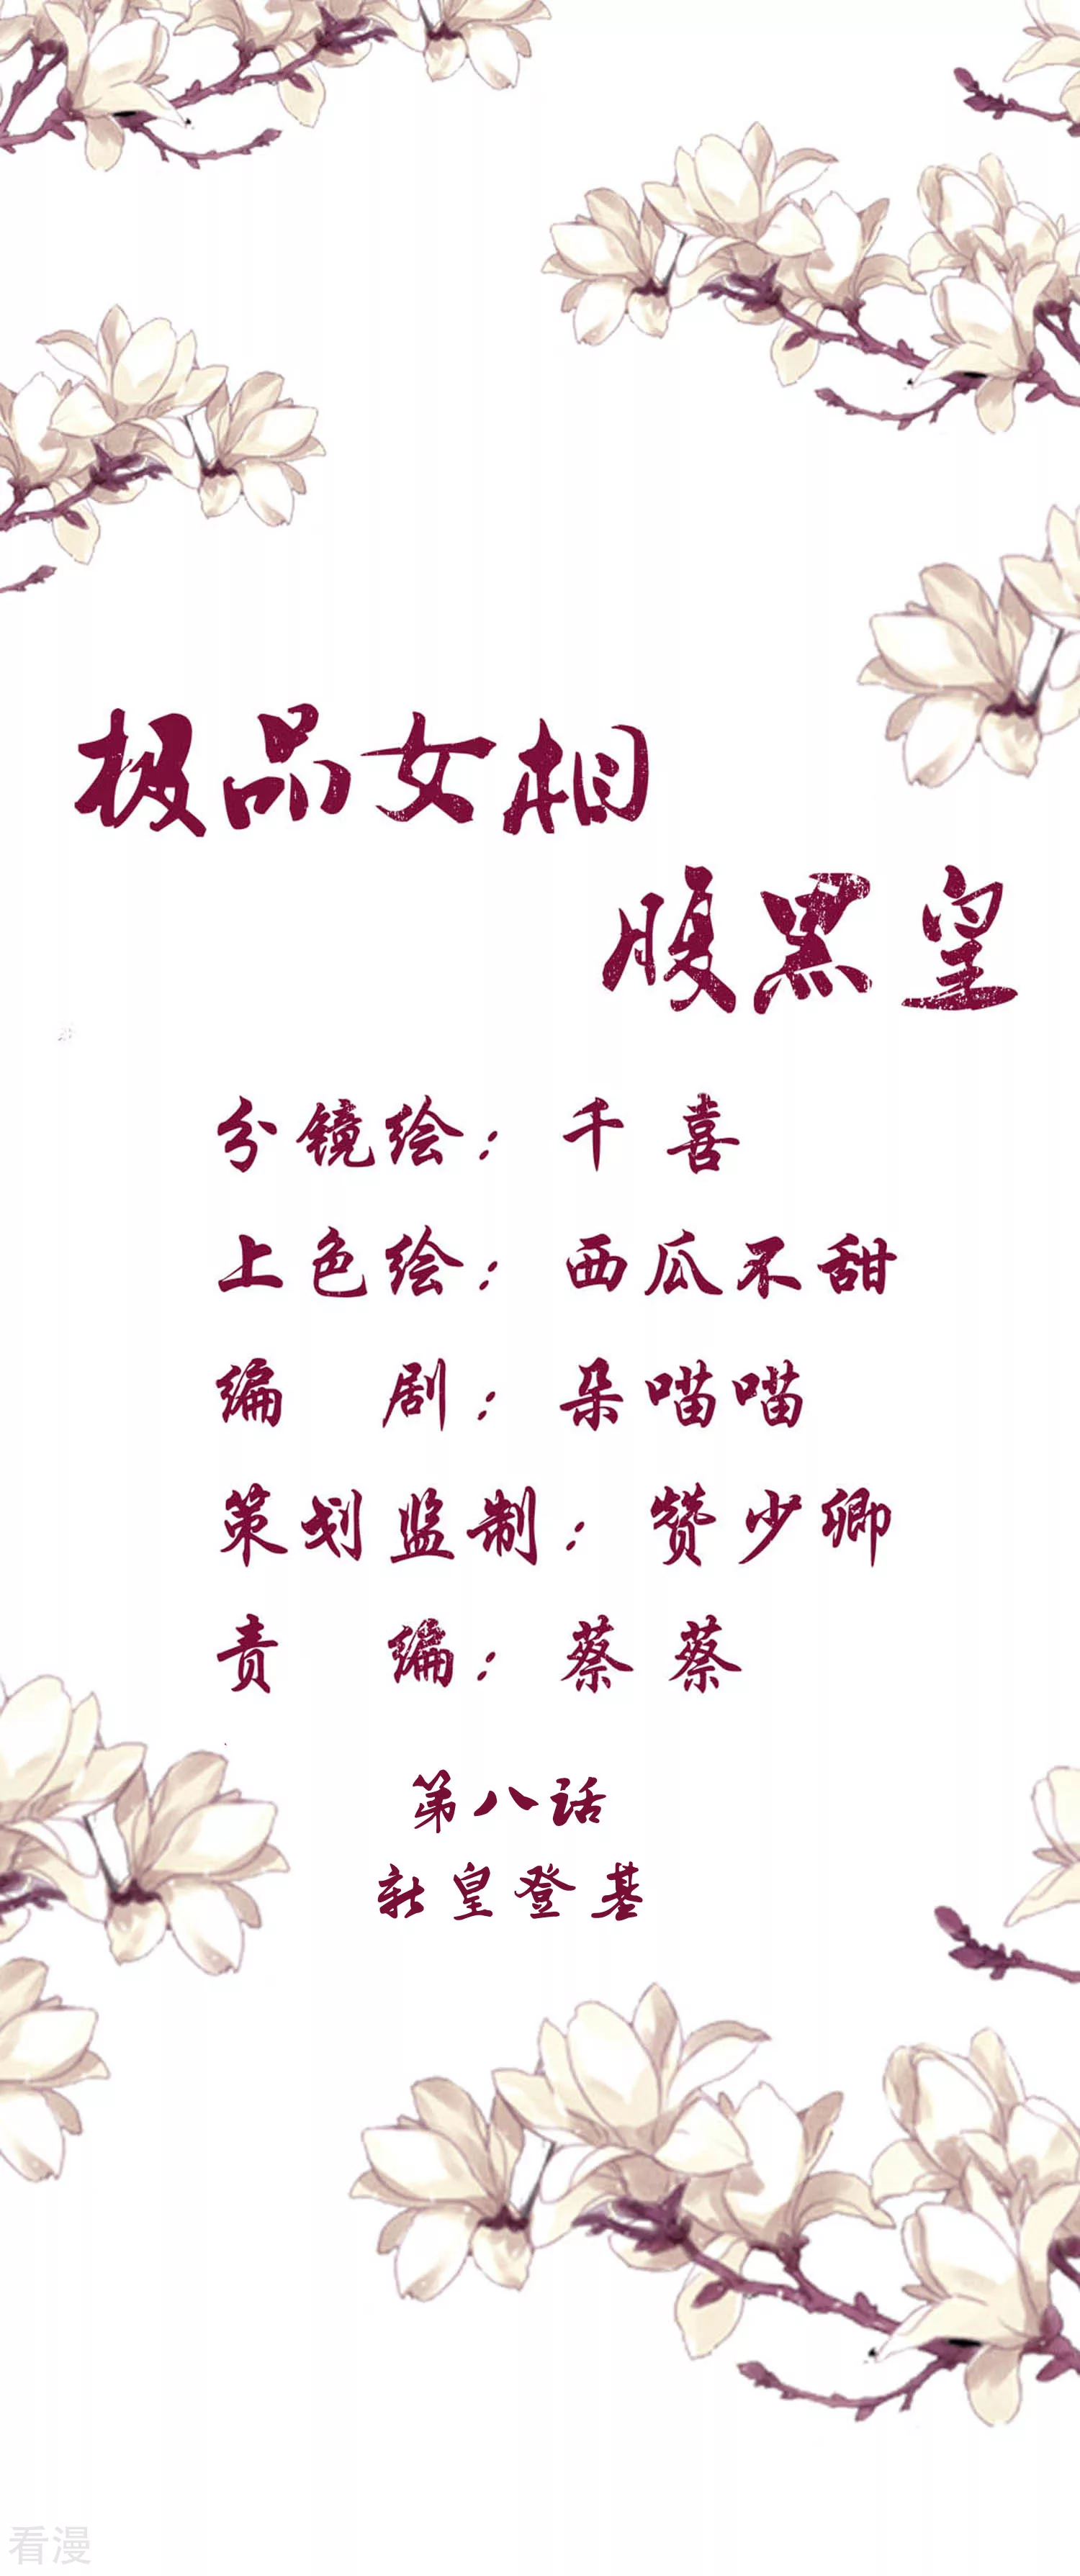 极品女相
腹黑皇
分镜绘：千喜
上色绘：西瓜不甜
编 剧：朵喵喵
策划监制：赞少卿
责 编：蔡蔡
第八话
新皇登基
看漫